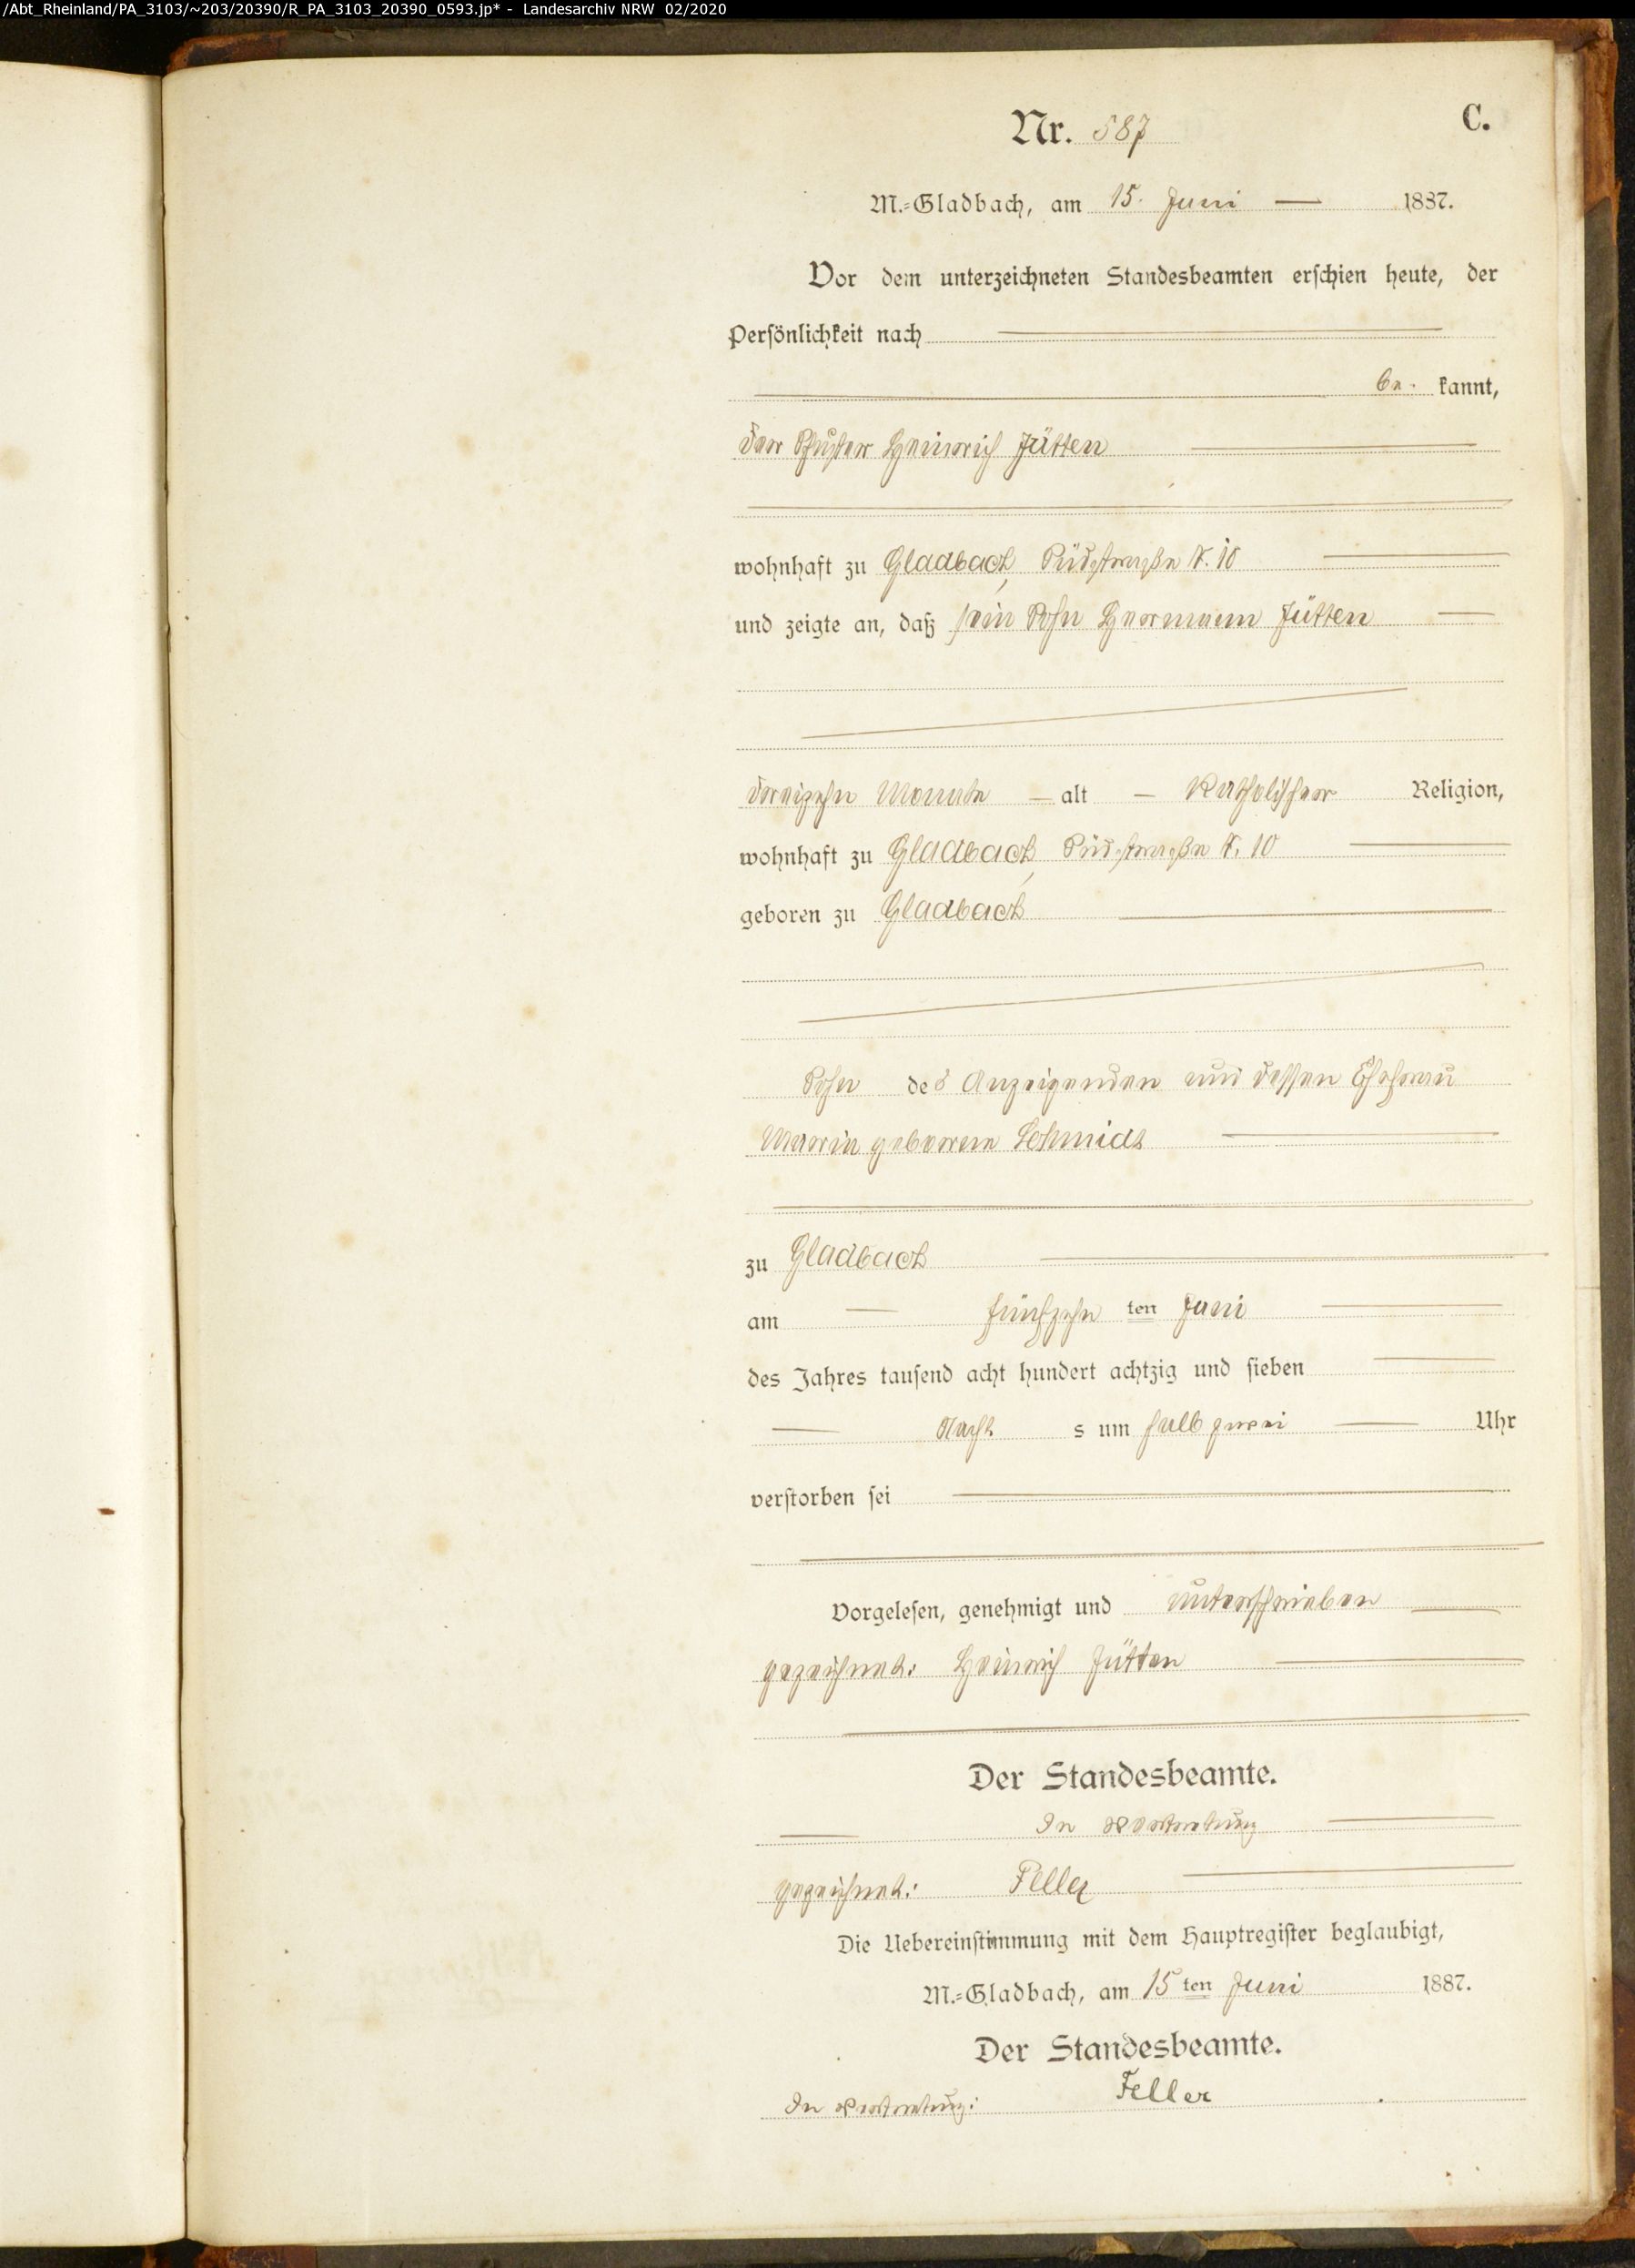 /Abt_Rheinland/PA_3103/~203/20390/R_PA_3103_20390_0593.jp* - Landesarchiv NRW 02/2020
C.
Nr. 587
M.-Gladbach, am 15. Juni 1887.
Vor dem unterzeichneten Standesbeamten erschien heute, der
Persönlichkeit nach
be- kannt,
der Schuster Heinrich Jütten
wohnhaft zu Gladbach, Südstraße N. 10
und zeigte an, daß sein Sohn Hermann Jütten
dreizehn Monate alt Katholischer Religion,
wohnhaft zu Gladbach, Südstraße N. 10
geboren zu Gladbach
Sohn des Anzeigenden und dessen Ehefrau
Maria geborene Schmidt
zu Gladbach
am fünfzehn ten Juni
des Jahres tausend acht hundert achtzig und sieben
Nacht s um halb zwei Uhr
verstorben sei
Vorgelesen, genehmigt und unterschrieben
gezeichnet: Heinrich Jütten
Der Standesbeamte.
In Vertretung
gezeichnet: Feller
Die Uebereinstimmung mit dem Hauptregister beglaubigt,
M.-Gladbach, am 15 ten Juni 1887.
Der Standesbeamte.
In Vertretung: Feller